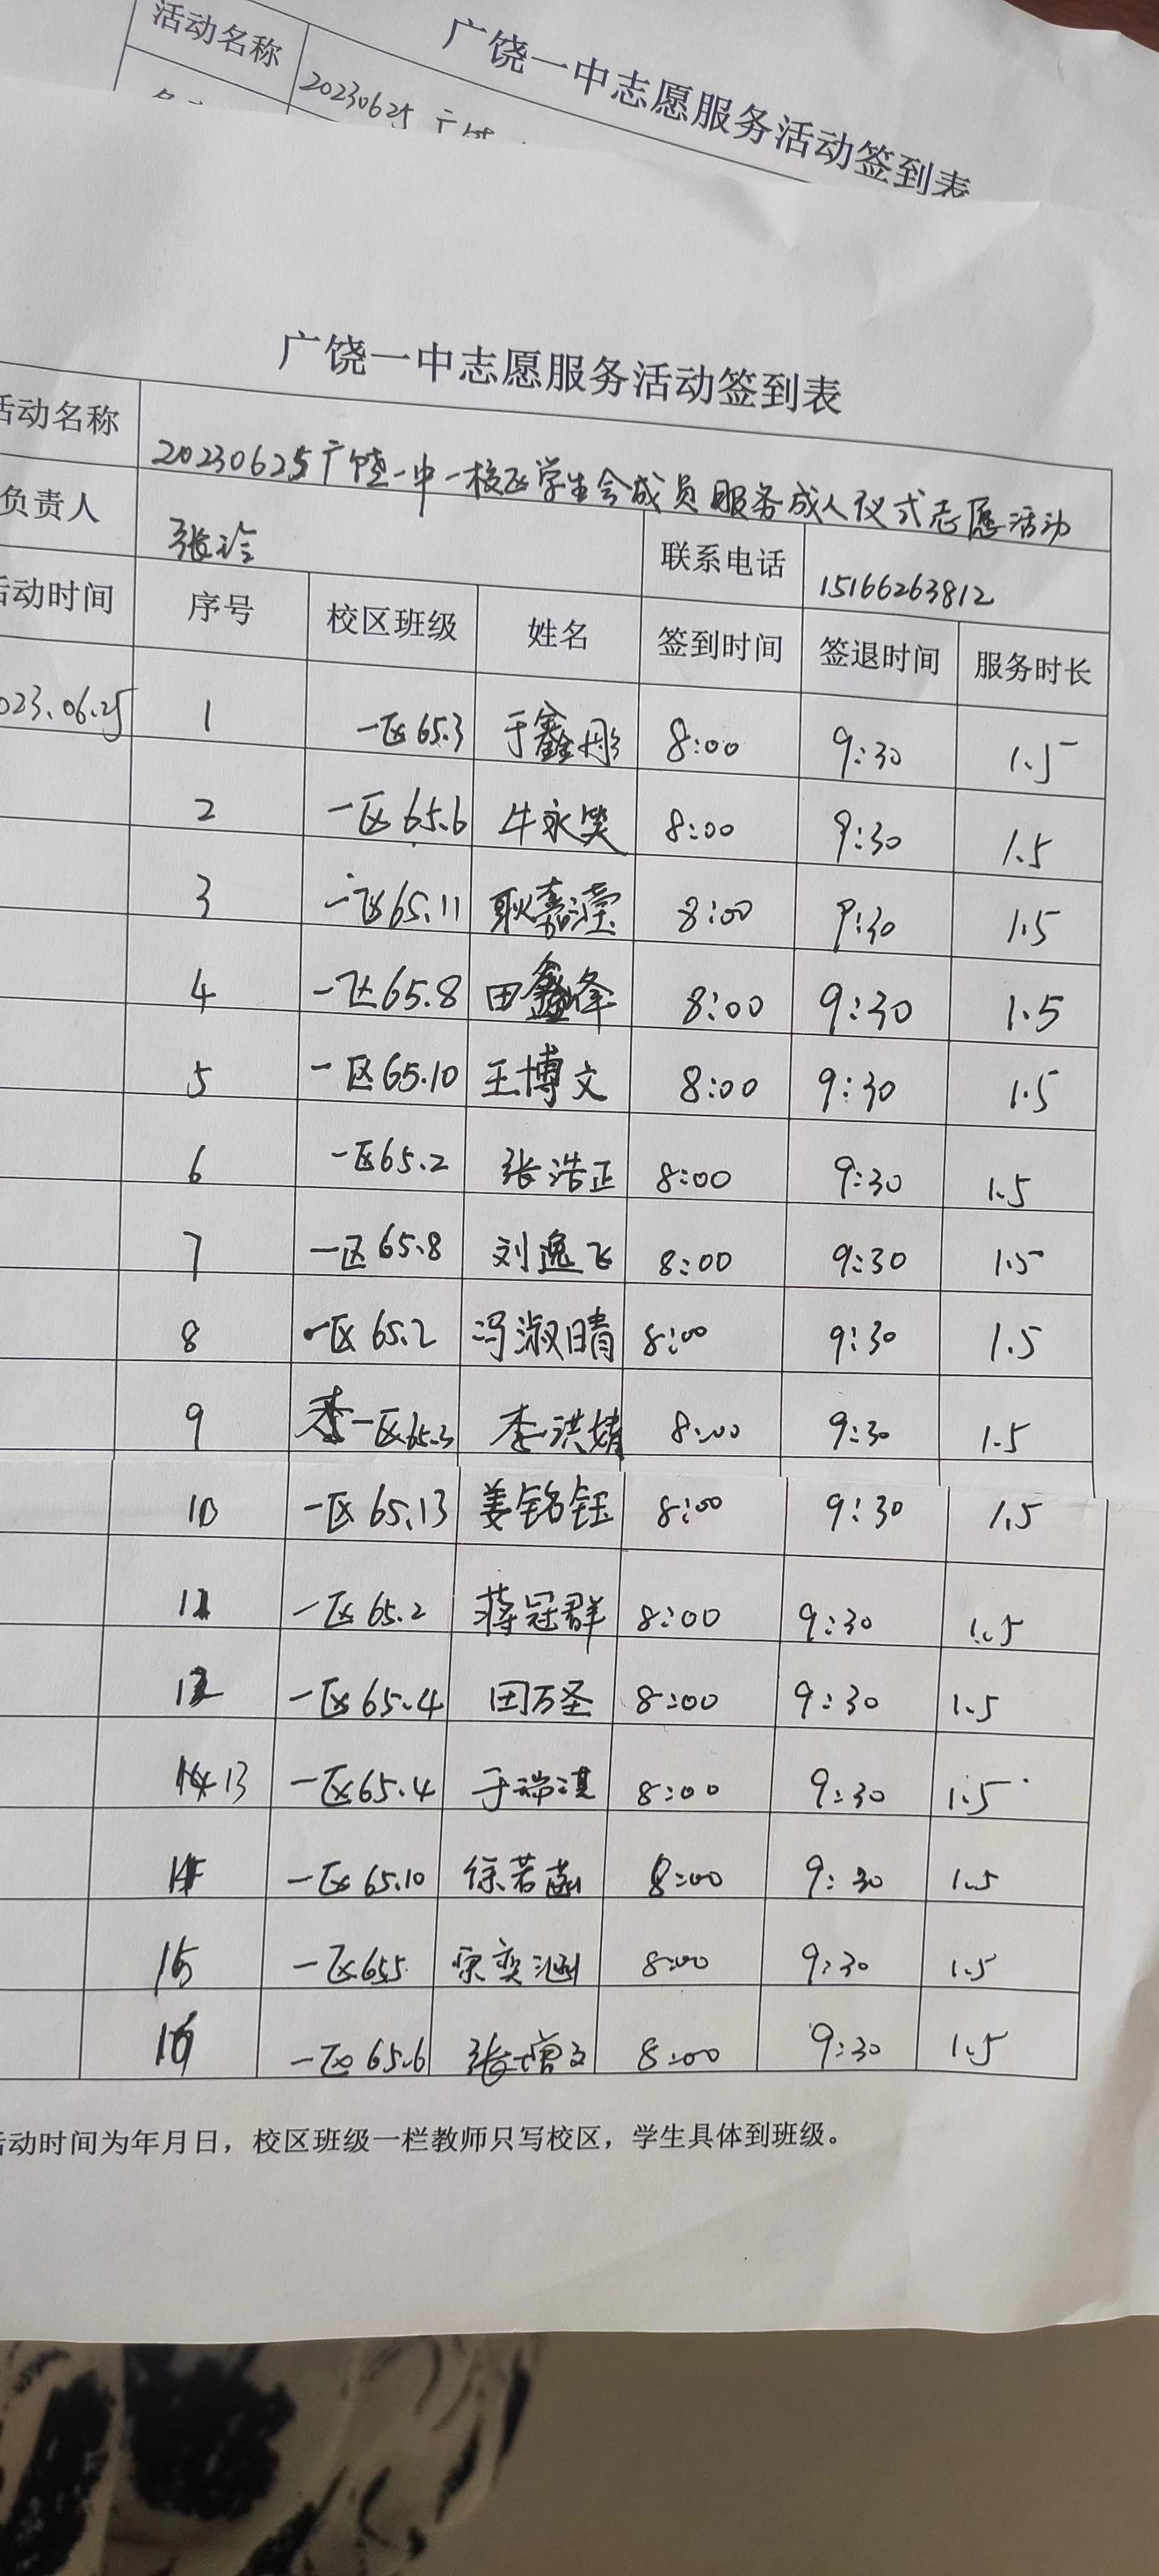 广饶一中志愿服务活动签到表
活动名称 20230625 广饶
广饶一中志愿服务活动签到表
活动名称 20230625广饶一中一校区学生会成员服务成人仪式志愿活动
负责人 张玲 联系电话 15166263812
活动时间 序号 校区班级 姓名 签到时间 签退时间 服务时长
023.06.25 1 一区65.3 于鑫彤 8:00 9:30 1.5
2 一区65.6 牛永笑 8:00 9:30 1.5
3 一区65.11 耿嘉滢 8:00 9:30 1.5
4 一区65.8 田鑫峰 8:00 9:30 1.5
5 一区65.10 王博文 8:00 9:30 1.5
6 一区65.2 张浩正 8:00 9:30 1.5
7 一区65.8 刘逸飞 8:00 9:30 1.5
8 一区65.2 冯淑晴 8:00 9:30 1.5
9 一区65.3 李洪婧 8:00 9:30 1.5
10 一区65.13 姜铭钰 8:00 9:30 1.5
11 一区65.2 蒋冠群 8:00 9:30 1.5
12 一区65.4 田万圣 8:00 9:30 1.5
13 一区65.4 于瑞淇 8:00 9:30 1.5
14 一区65.10 徐若菡 8:00 9:30 1.5
15 一区65.5 奕涵 8:00 9:30 1.5
16 一区65.6 张增文 8:00 9:30 1.5
活动时间为年月日，校区班级一栏教师只写校区，学生具体到班级。